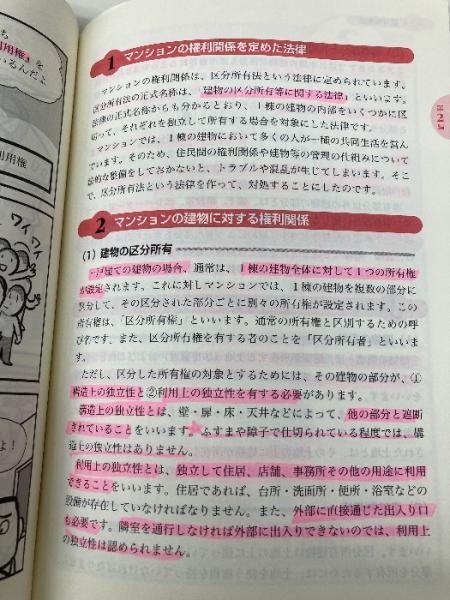 ち
用権』を
いるんだよ
利用権
ワイワイ
よ！
第2編
1 マンションの権利関係を定めた法律
マンションの権利関係は、区分所有法という法律に定められています。
区分所有法の正式名称は、「建物の区分所有等に関する法律」といいます。
法律の正式名称からも分かるとおり、1棟の建物の内部をいくつかに区
切って、それぞれを独立して所有する場合を対象にした法律です。
マンションでは、1棟の建物において多くの人が一種の共同生活を営ん
でいます。そのため、住民間の権利関係や建物等の管理の仕組みについて
法的な整備をしておかないと、トラブルや混乱が生じてしまいます。そこ
で、区分所有法という法律を作って、対処することにしたのです。
2 マンションの建物に対する権利関係
(1) 建物の区分所有
一戸建ての建物の場合、通常は、1棟の建物全体に対して1つの所有権
が設定されます。これに対しマンションでは、1棟の建物を複数の部分に
区分して、その区分された部分ごとに別々の所有権が設定されます。この
所有権は、「区分所有権」といいます。通常の所有権と区別するための呼
び名です。また、区分所有権を有する者のことを「区分所有者」といいま
す。
ただし、区分した所有権の対象とするためには、その建物の部分が、①
構造上の独立性と②利用上の独立性を有する必要があります。
構造上の独立性とは、壁・扉・床・天井などによって、他の部分と遮断
されていることをいいます。ふすまや障子で仕切られている程度では、構
造上の独立性はありません。
利用上の独立性とは、独立して住居、店舗、事務所その他の用途に利用
できることをいいます。住居であれば、台所・洗面所・便所・浴室などの
設備が存在していなければなりません。また、外部に直接通じた出入り口
も必要です。隣室を通行しなければ外部に出入りできないのでは、利用上
の独立性は認められません。